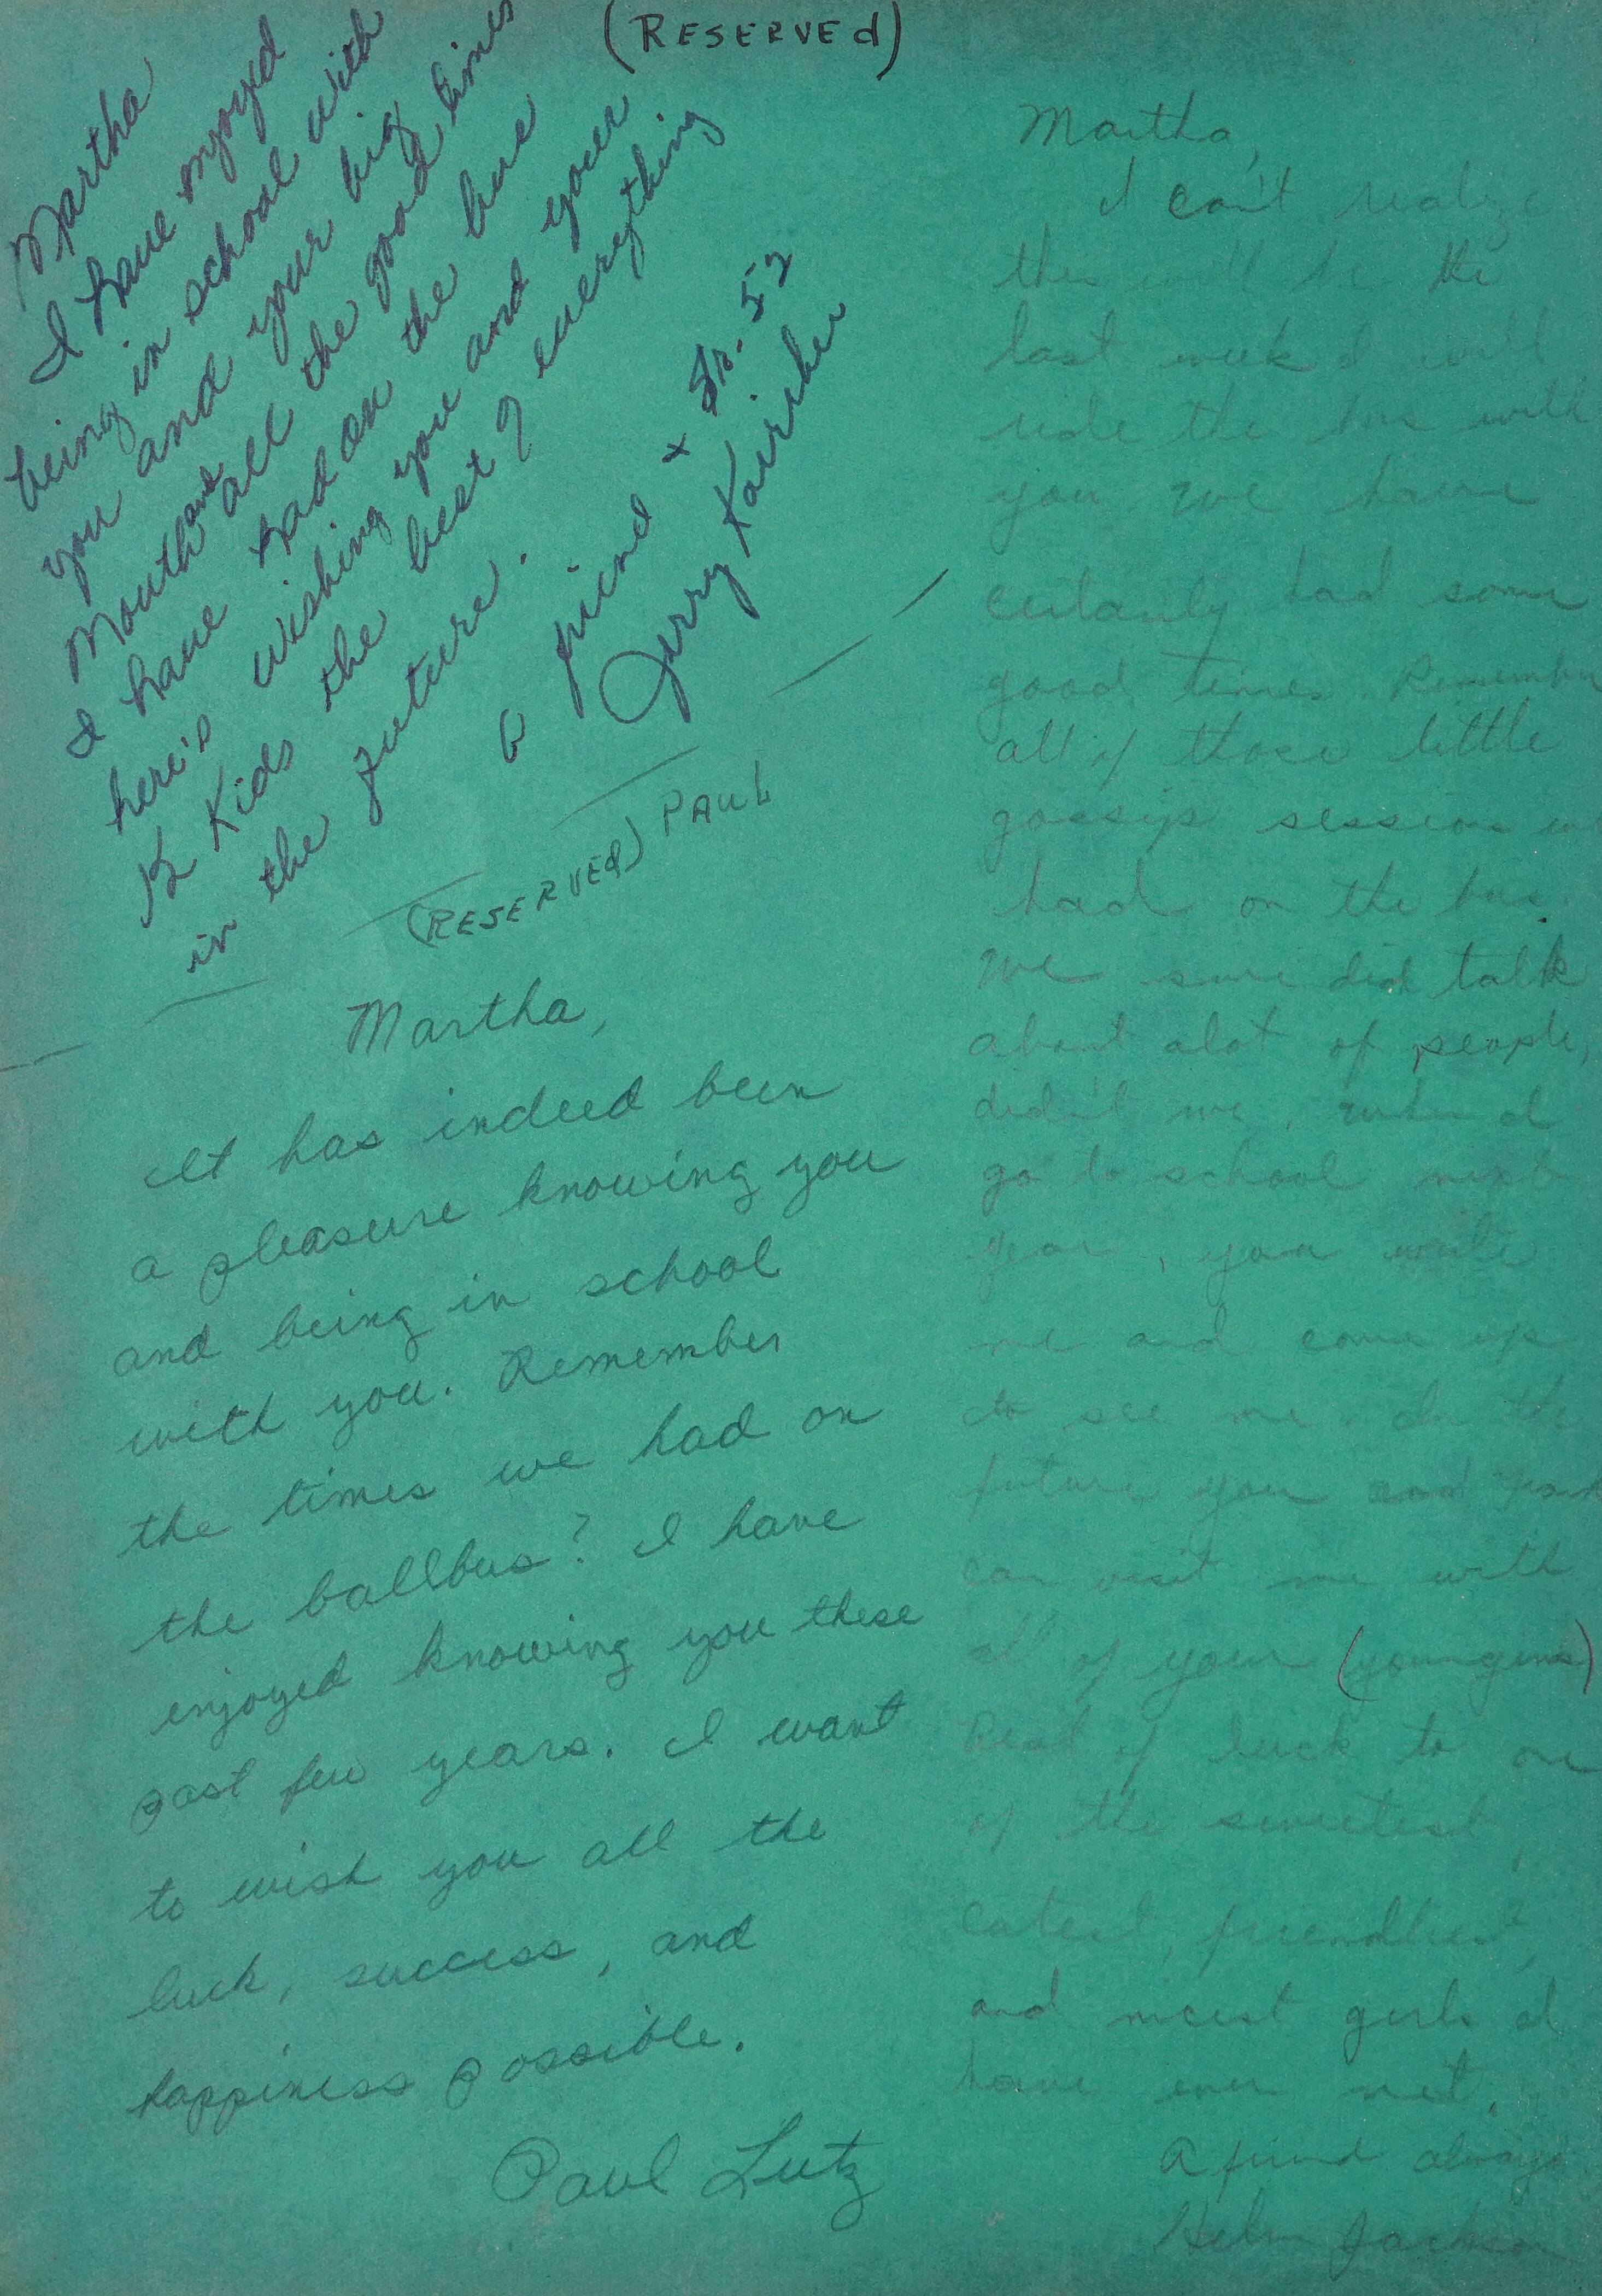 (RESERVEd)
Martha
I have enjoyed
being in school with
you and your big
Mouth and all the good times
I have had on the bus
here's wishing you and your
12 Kids the best of everything
in the future.
a friend + Sr. 52
Jerry
(RESERVEd) PAUL
Martha,
It has indeed been
a pleasure knowing you
and being in school
with you. Remember
the times we had on
the ballbus? I have
enjoyed knowing you these
past few years. I want
to wish you all the
luck, success, and
happiness possible.
Paul Lutz
Martha,
I can't realize
this will be the
last week I will
ride the bus with
you. We have
certainly had some
good times. Remember
all of those little
gossip sessions we
had on the bus.
We sure did talk
about alot of people,
didn't we. When I
go to school next
year, you write
me and come up
to see me. In the
future you and
can visit me with
all of your (youngins)
Best of luck to one
of the sweetest,
cutest, friendliest,
and nicest girls I
have ever met.
A friend always
Helen Jackson